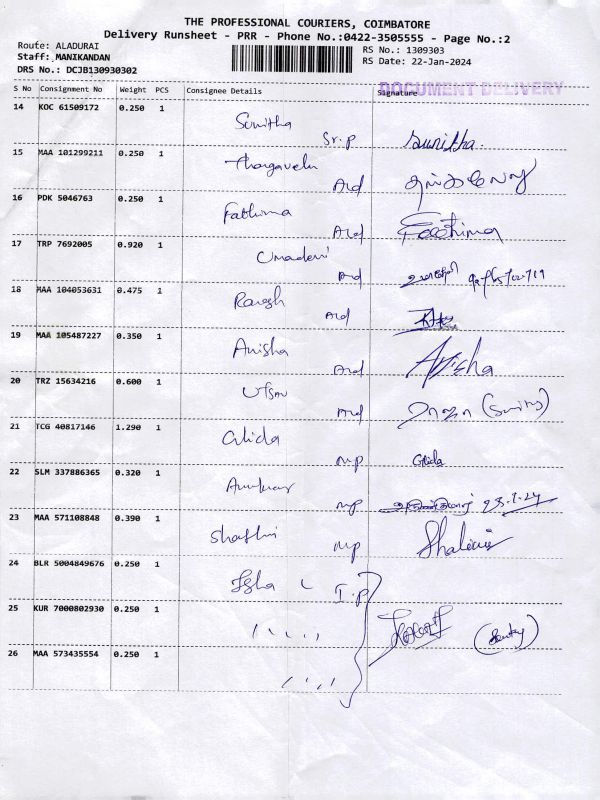 THE PROFESSIONAL COURIERS, COIMBATORE
Delivery Runsheet - PRR - Phone No.:0422-3505555 - Page No.:2
Route: ALADURAI
RS No.: 1309303
Staff: MANIKANDAN
RS Date: 22-Jan-2024
DRS No.: DCJB130930302
DOCUMENT DELIVERY
S No Consignment No Weight PCS Consignee Details Signature
14 KOC 61509172 0.250 1 Sunitha Sr.p Sunitha.
15 MAA 101299211 0.250 1 Thangavelu Ard
16 PDK 5046763 0.250 1 Fathima Ard Faathima
17 TRP 7692005 0.920 1 Umadevi Ard
18 MAA 104053631 0.475 1 Ard
19 MAA 105487227 0.350 1 Anisha Ard Anisha
20 TRZ 15634216 0.600 1 Ard
21 TCG 40817146 1.290 1 mp
22 SLM 337886365 0.320 1 mp 23.1.24
23 MAA 571108848 0.390 1 mp
24 BLR 5004849676 0.250 1 Isha I.p
25 KUR 7000802930 0.250 1 (Security)
26 MAA 573435554 0.250 1